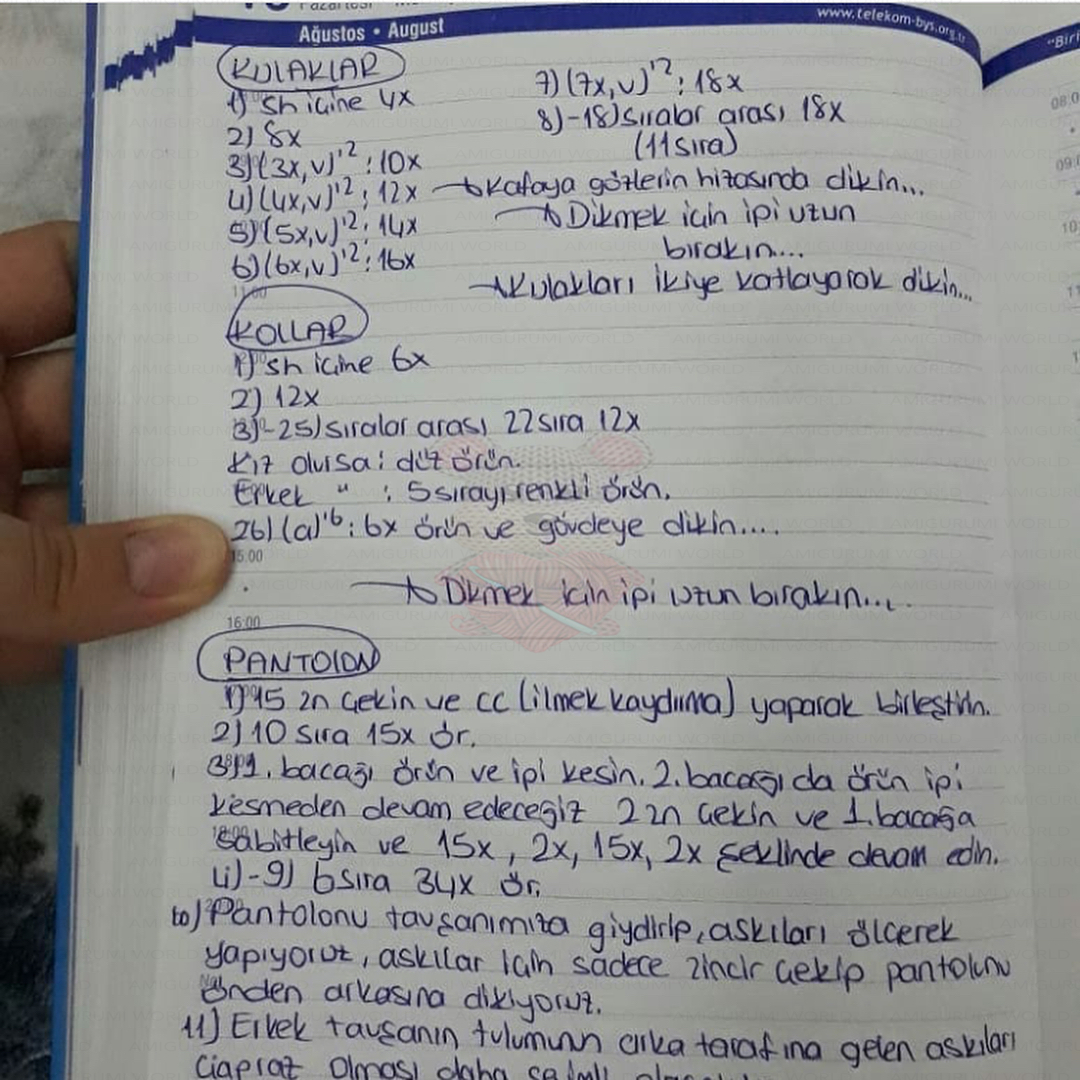 Pazartesi
Ağustos • August
www.telekom-bys.org.tr
"Biri
KULAKLAR
1) sh içine 4x
2) 8x
3) (3x,v)'2 : 10x
4) (4x,v)'2 : 12x
5) (5x,v)'2 : 14x
6) (6x,v)'2 : 16x
7) (7x,v)'2 : 18x
8)-18) sıralar arası 18x
(11 sıra)
→ Kafaya gözlerin hizasında dikin...
→ Dikmek için ipi uzun
bırakın...
→ Kulakları ikiye katlayarak dikin...
11:00
KOLLAR
1) sh içine 6x
2) 12x
3)-25) sıralar arası 22 sıra 12x
Kız olursa : düz örün.
Erkek " : 5 sırayı renkli örün.
26) (a)'6 : 6x örün ve gövdeye dikin....
15:00
→ Dikmek için ipi uzun bırakın...
16:00
PANTOLON
1) 15 zn çekin ve cc (ilmek kaydırma) yaparak birleştirin.
2) 10 sıra 15x ör.
3) 1. bacağı örün ve ipi kesin. 2. bacağı da örün ipi
kesmeden devam edeceğiz 2 zn çekin ve 1. bacağa
sabitleyin ve 15x, 2x, 15x, 2x şeklinde devam edin.
4)-9) 6 sıra 34x ör.
10) Pantolonu tavşanımıza giydirip, askıları ölçerek
yapıyoruz, askılar için sadece zincir çekip pantolonu
önden arkasına dikiyoruz.
11) Erkek tavşanın tulumunun arka tarafına gelen askıları
çapraz olması daha